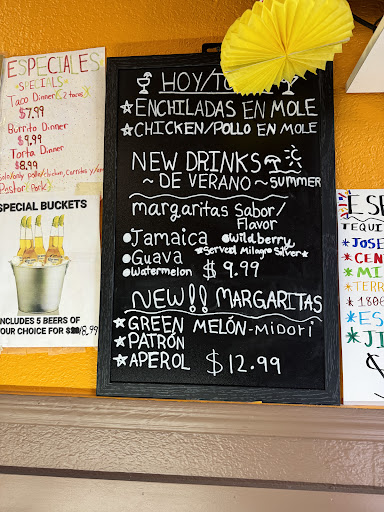 ESPECIALES
*SPECIALS*
Taco Dinner (2 tacos)
$7.99
Burrito Dinner
$9.99
Torta Dinner
$8.99
Pastor Pork
SPECIAL BUCKETS
INCLUDES 5 BEERS OF
OUR CHOICE FOR $
18.99
HOY/
ENCHILADAS EN MOLE
CHICKEN/POLLO EN MOLE
NEW DRINKS
~DE VERANO~SUMMER
margaritas Sabor/
Flavor
Jamaica Wildberry
Guava *Served Milagro Silver*
Watermelon $9.99
NEW!! MARGARITAS
GREEN MELÓN-MIDORI
PATRÓN
APEROL $12.99
ESP
TEQUI
*JOSE
*CEN
*MIL
*TERR
*1800
*ES
*JI